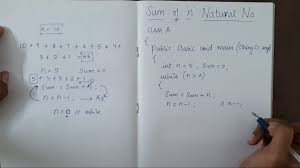 n = 10
10 + 9 + 8 + 7 + 6 + 5 + 4 +
3 + 2 + 1 = 55
n = 5 Sum = 0
5 + 4 + 3 + 2 + 1
Sum = Sum + n ;
n = n - 1 ;
n = 0 // while
Sum of n Natural No
class A
{
public static void main (String[] args)
{
int n = 5 , Sum = 0 ;
while (n > 0)
{
Sum = Sum + n ;
n = n - 1 ; // n-- ;